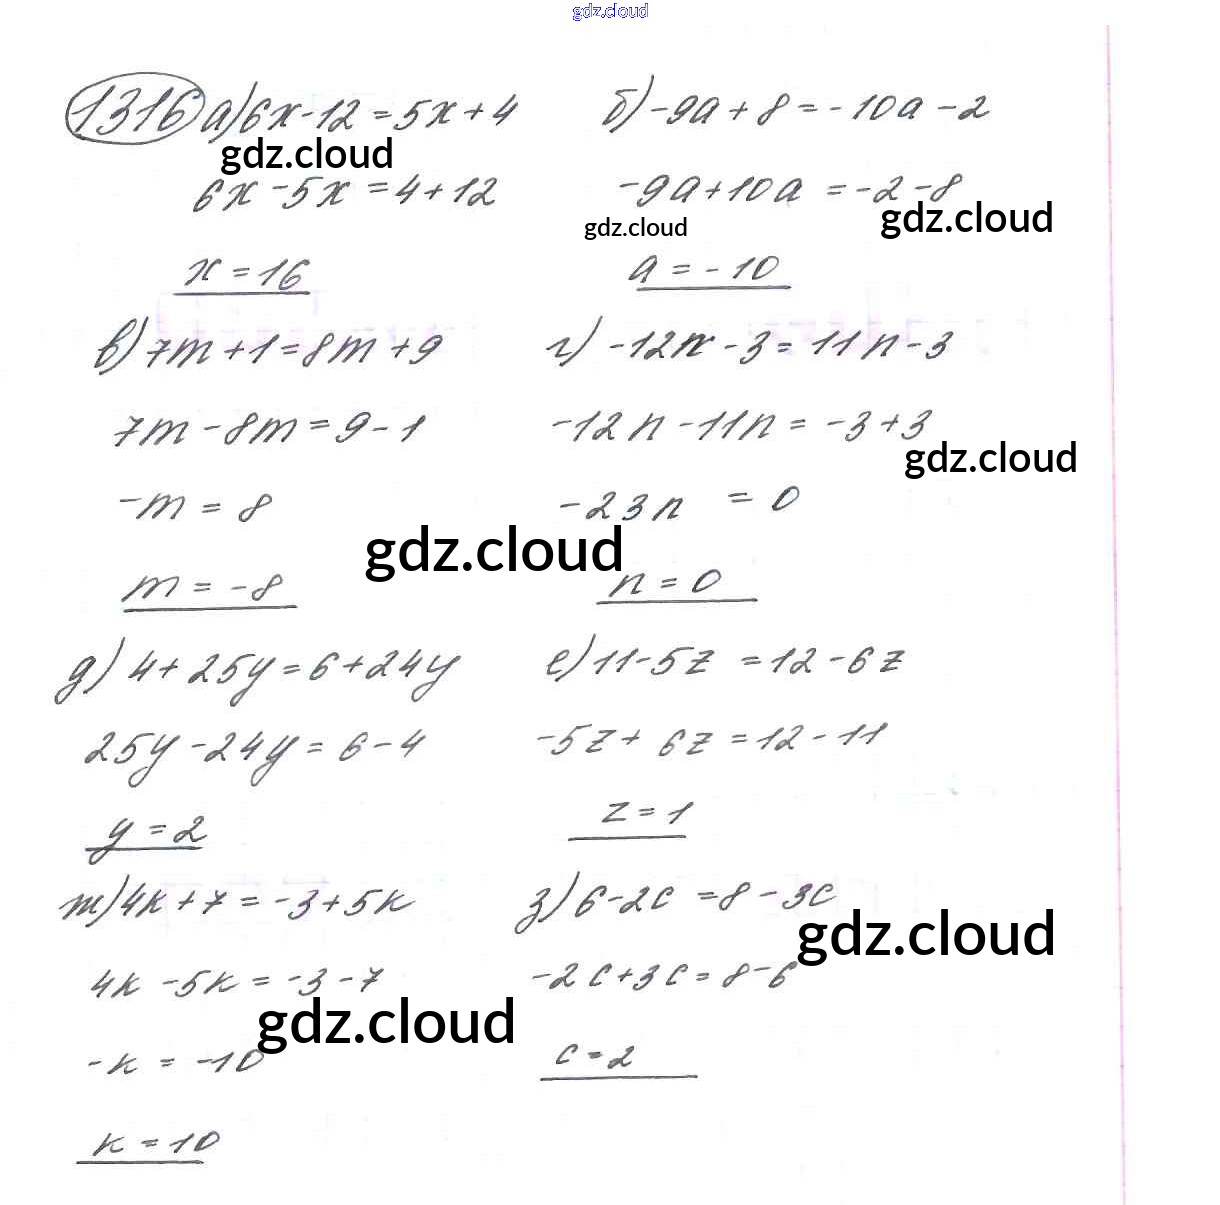 gdz.cloud
1316 а) 6x - 12 = 5x + 4
gdz.cloud
6x - 5x = 4 + 12
x = 16
б) -9a + 8 = -10a - 2
-9a + 10a = -2 - 8
gdz.cloud
gdz.cloud
a = -10
в) 7m + 1 = 8m + 9
7m - 8m = 9 - 1
-m = 8
gdz.cloud
m = -8
г) -12n - 3 = 11n - 3
-12n - 11n = -3 + 3
gdz.cloud
-23n = 0
n = 0
д) 4 + 25y = 6 + 24y
25y - 24y = 6 - 4
y = 2
е) 11 - 5z = 12 - 6z
-5z + 6z = 12 - 11
z = 1
ж) 4k + 7 = -3 + 5k
4k - 5k = -3 - 7
gdz.cloud
-k = -10
k = 10
з) 6 - 2c = 8 - 3c
gdz.cloud
-2c + 3c = 8 - 6
c = 2